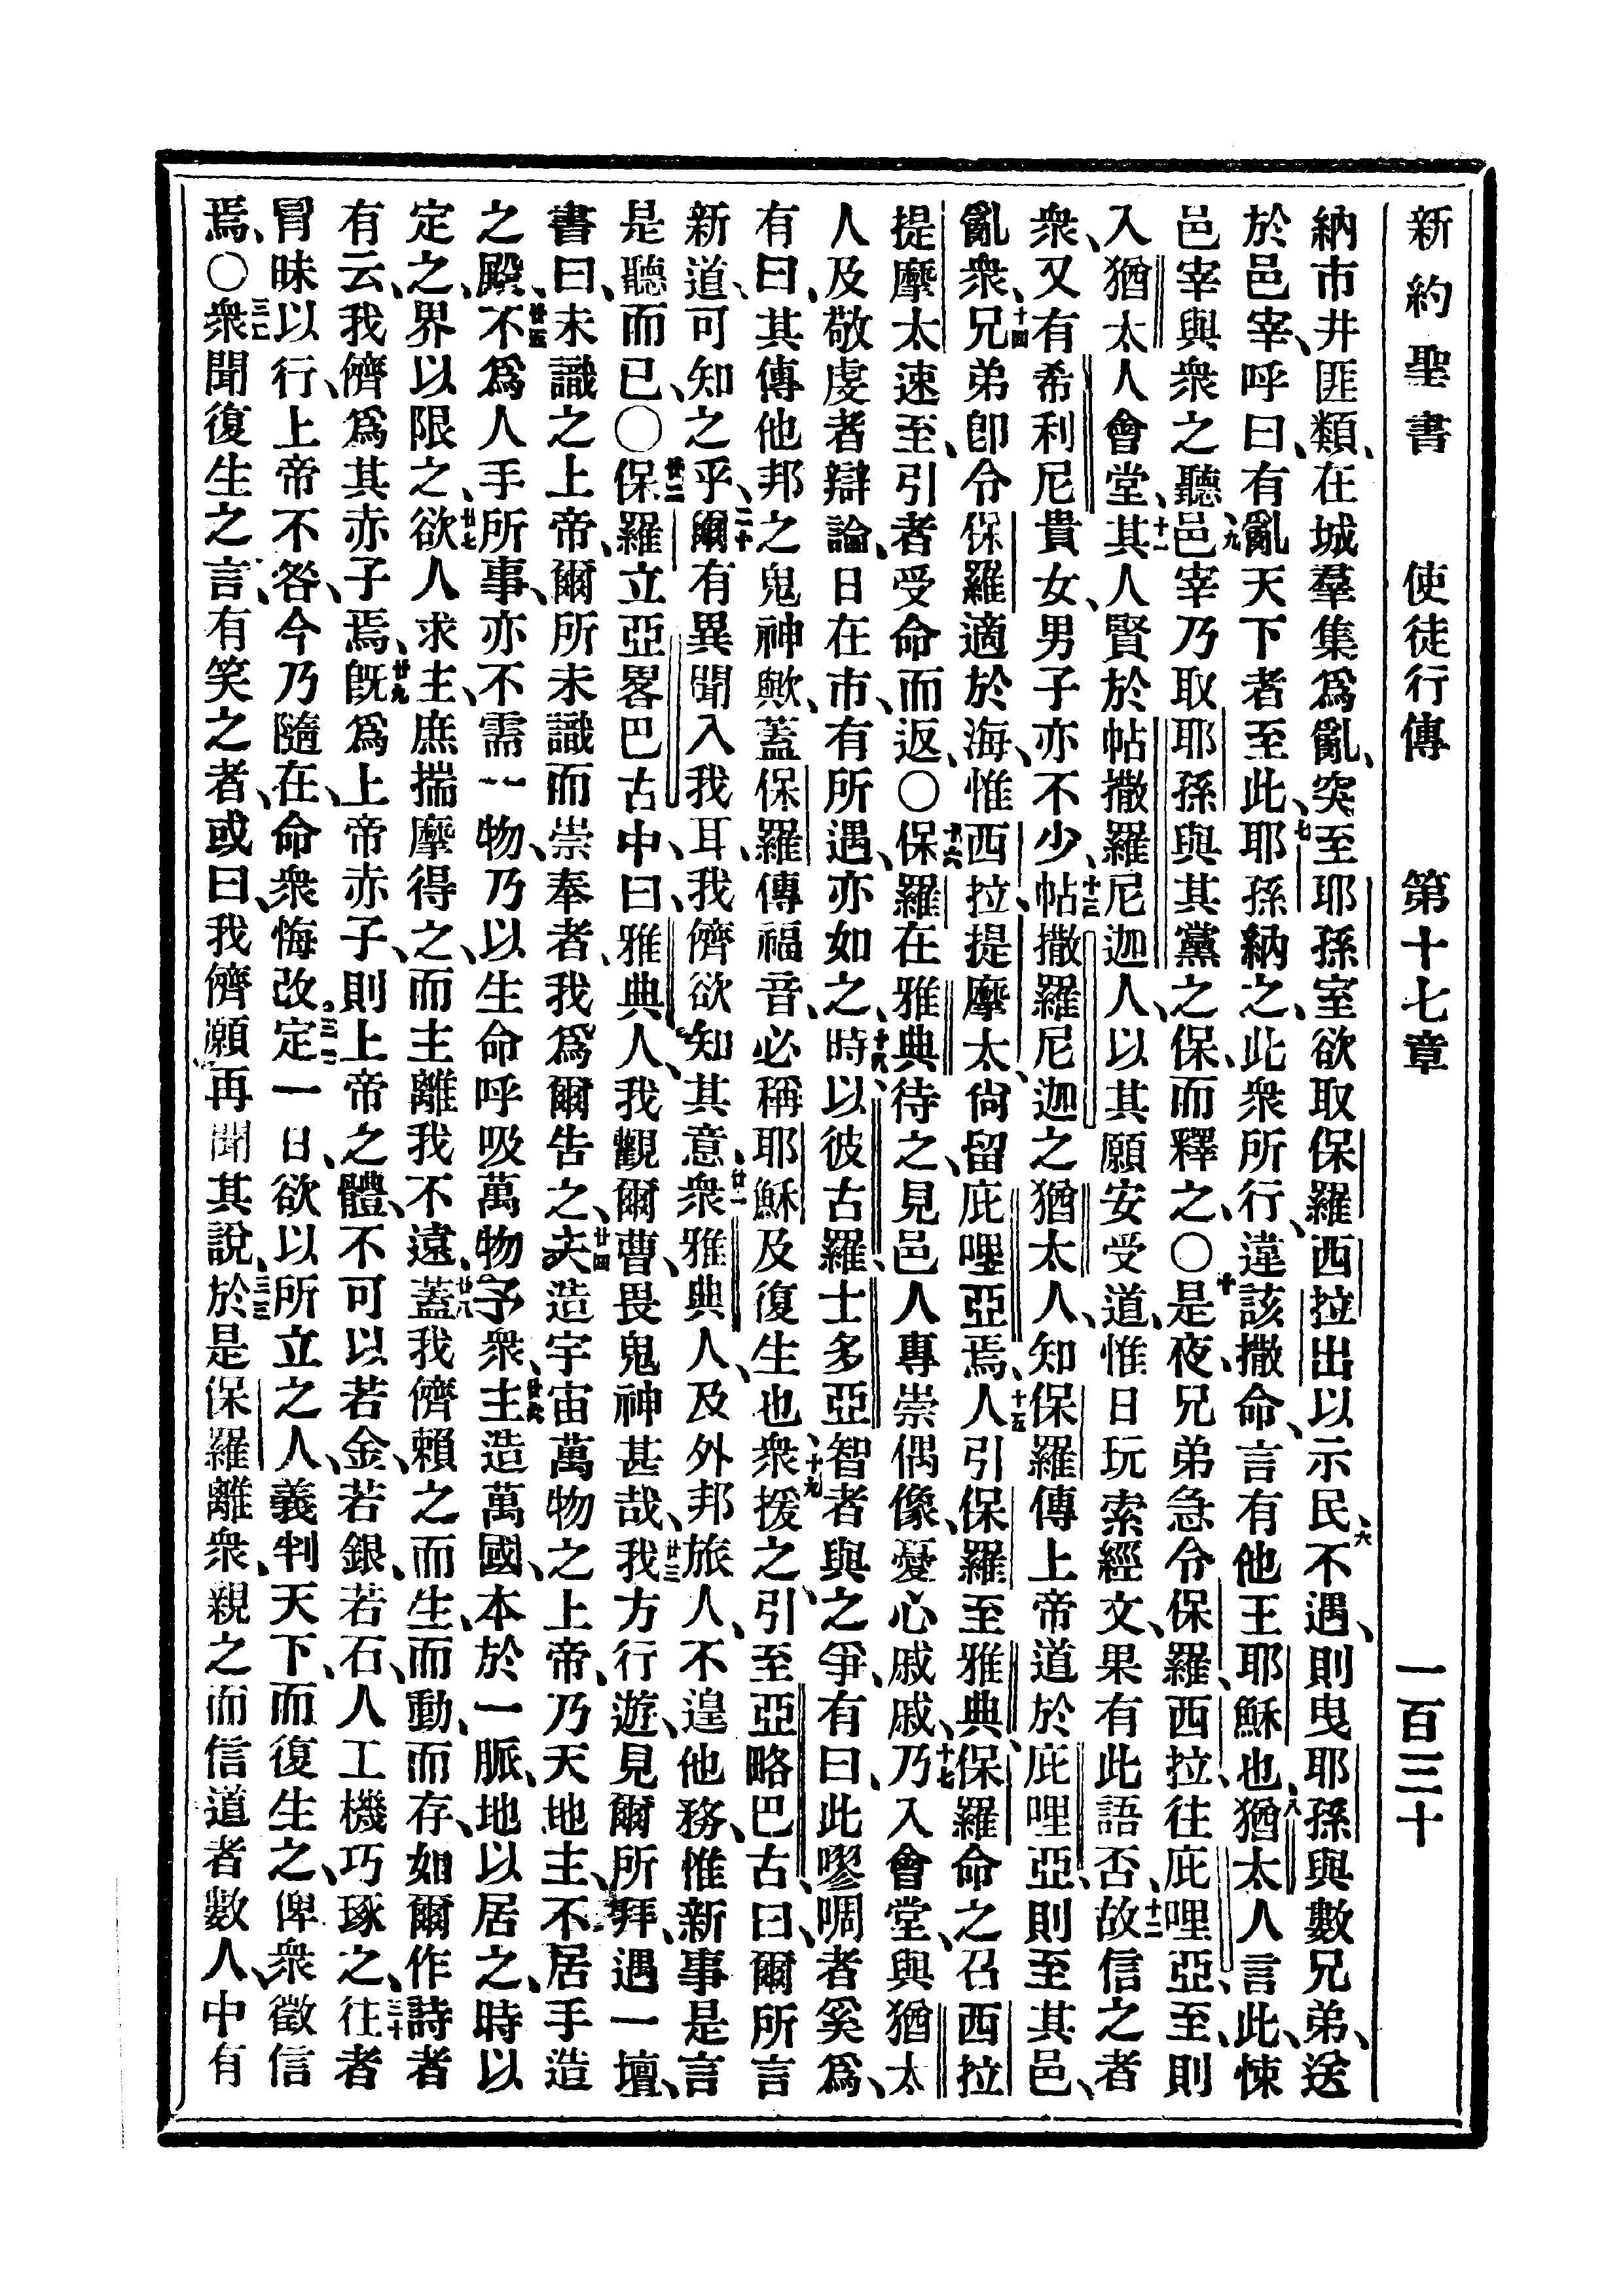 新約聖書　使徒行傳　第十七章　一百三十
納市井匪類、在城羣集爲亂、突至耶孫室、欲取保羅西拉出以示民、六不遇、則曳耶孫與數兄弟、送
於邑宰、呼曰、有亂天下者至此、七耶孫納之、此衆所行、違該撒命、言有他王耶穌也、八猶太人言此、悚
邑宰與衆之聽、九邑宰乃取耶孫與其黨之保、而釋之、〇十是夜、兄弟急令保羅、西拉、往庇哩亞、至、則
入猶太人會堂、十一其人賢於帖撒羅尼迦人、以其願安受道、惟日玩索經文、果有此語否、十二故信之者
衆、又有希利尼貴女、男子亦不少、十三帖撒羅尼迦之猶太人、知保羅傳上帝道於庇哩亞、則至其邑、
亂衆、十四兄弟卽令保羅適於海、惟西拉、提摩太、尙留庇哩亞焉、十五人引保羅至雅典、保羅命之召西拉
提摩太速至、引者受命而返、〇十六保羅在雅典待之、見邑人專崇偶像、憂心戚戚、十七乃入會堂、與猶太
人及敬虔者辯論、日在市、有所遇、亦如之、十八時、以彼古羅、士多亞、智者與之爭、有曰、此嘐啁者奚爲、
有曰、其傳他邦之鬼神歟、蓋保羅傳福音、必稱耶穌及復生也、十九衆援之、引至亞略巴古、曰、爾所言
新道、可知之乎、二十爾有異聞入我耳、我儕欲知其意、廿一衆雅典人、及外邦旅人、不遑他務、惟新事是言
是聽而已、〇廿二保羅立亞畧巴古中、曰、雅典人、我觀爾曹、畏鬼神甚哉、廿三我方行遊、見爾所拜、遇一壇、
書曰、未識之上帝、爾所未識而崇奉者、我爲爾告之、廿四夫造宇宙萬物之上帝、乃天地主、不居手造
之殿、廿五不爲人手所事、亦不需一物、乃以生命呼吸萬物予衆、廿六主造萬國、本於一脈、地以居之、時以
定之、界以限之、廿七欲人求主、庶揣摩得之、而主離我不遠、廿八蓋我儕賴之而生、而動、而存、如爾作詩者
有云、我儕爲其赤子焉、廿九旣爲上帝赤子、則上帝之體、不可以若金、若銀、若石、人工機巧琢之、三十往者
冒昧以行、上帝不咎、今乃隨在、命衆悔改、三一定一日、欲以所立之人、義判天下、而復生之、俾衆徵信
焉、〇三二衆聞復生之言、有笑之者、或曰、我儕願再聞其說、三三於是保羅離衆、親之而信道者數人、中有